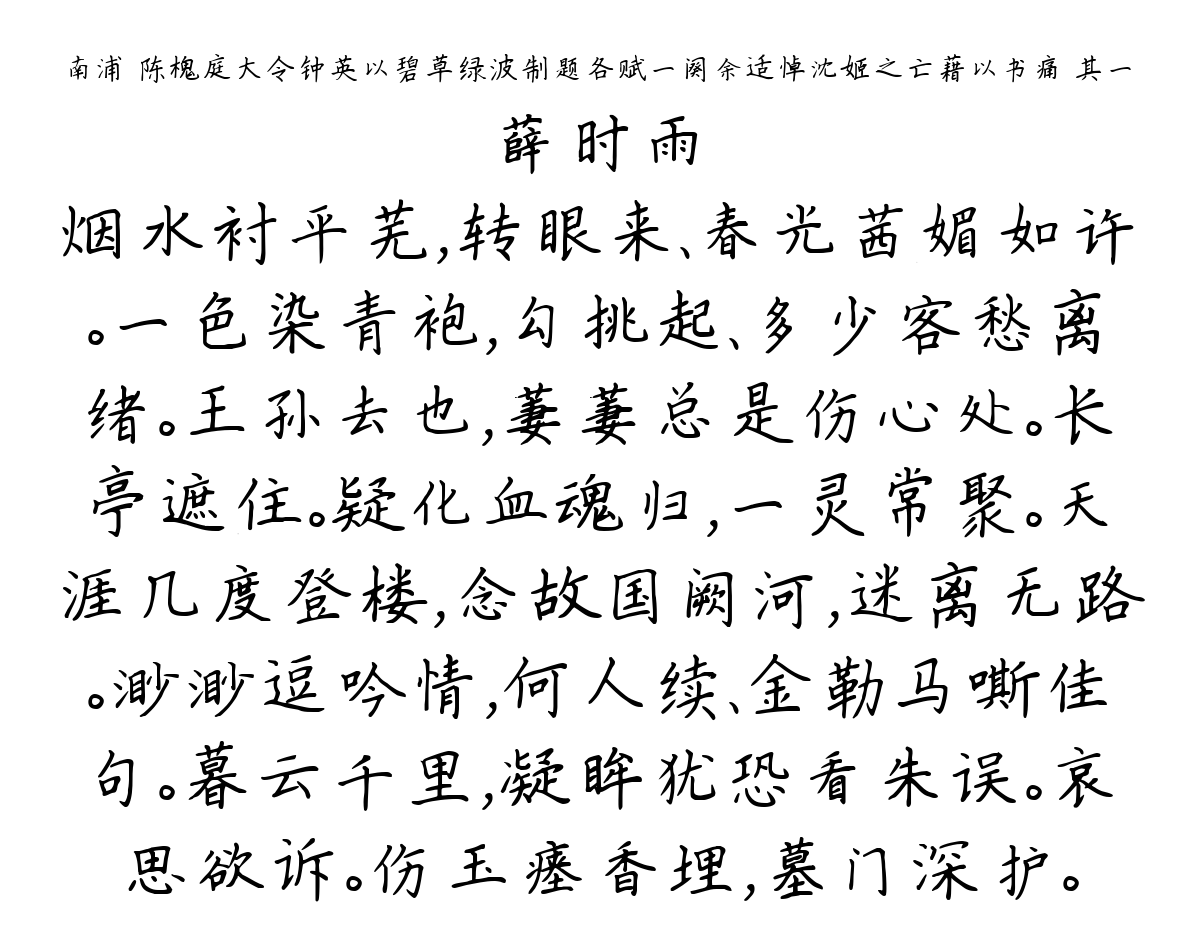 南浦 陈槐庭大令钟英以碧草绿波制题各赋一阕余适悼沈姬之亡藉以书痛 其一
薛时雨
烟水衬平芜,转眼来、春光茜媚如许
。一色染青袍,勾挑起、多少客愁离
绪。王孙去也,萋萋总是伤心处。长
亭遮住。疑化血魂归,一灵常聚。天
涯几度登楼,念故国阙河,迷离无路
。渺渺逗吟情,何人续、金勒马嘶佳
句。暮云千里,凝眸犹恐看朱误。哀
思欲诉。伤玉瘗香埋,墓门深护。